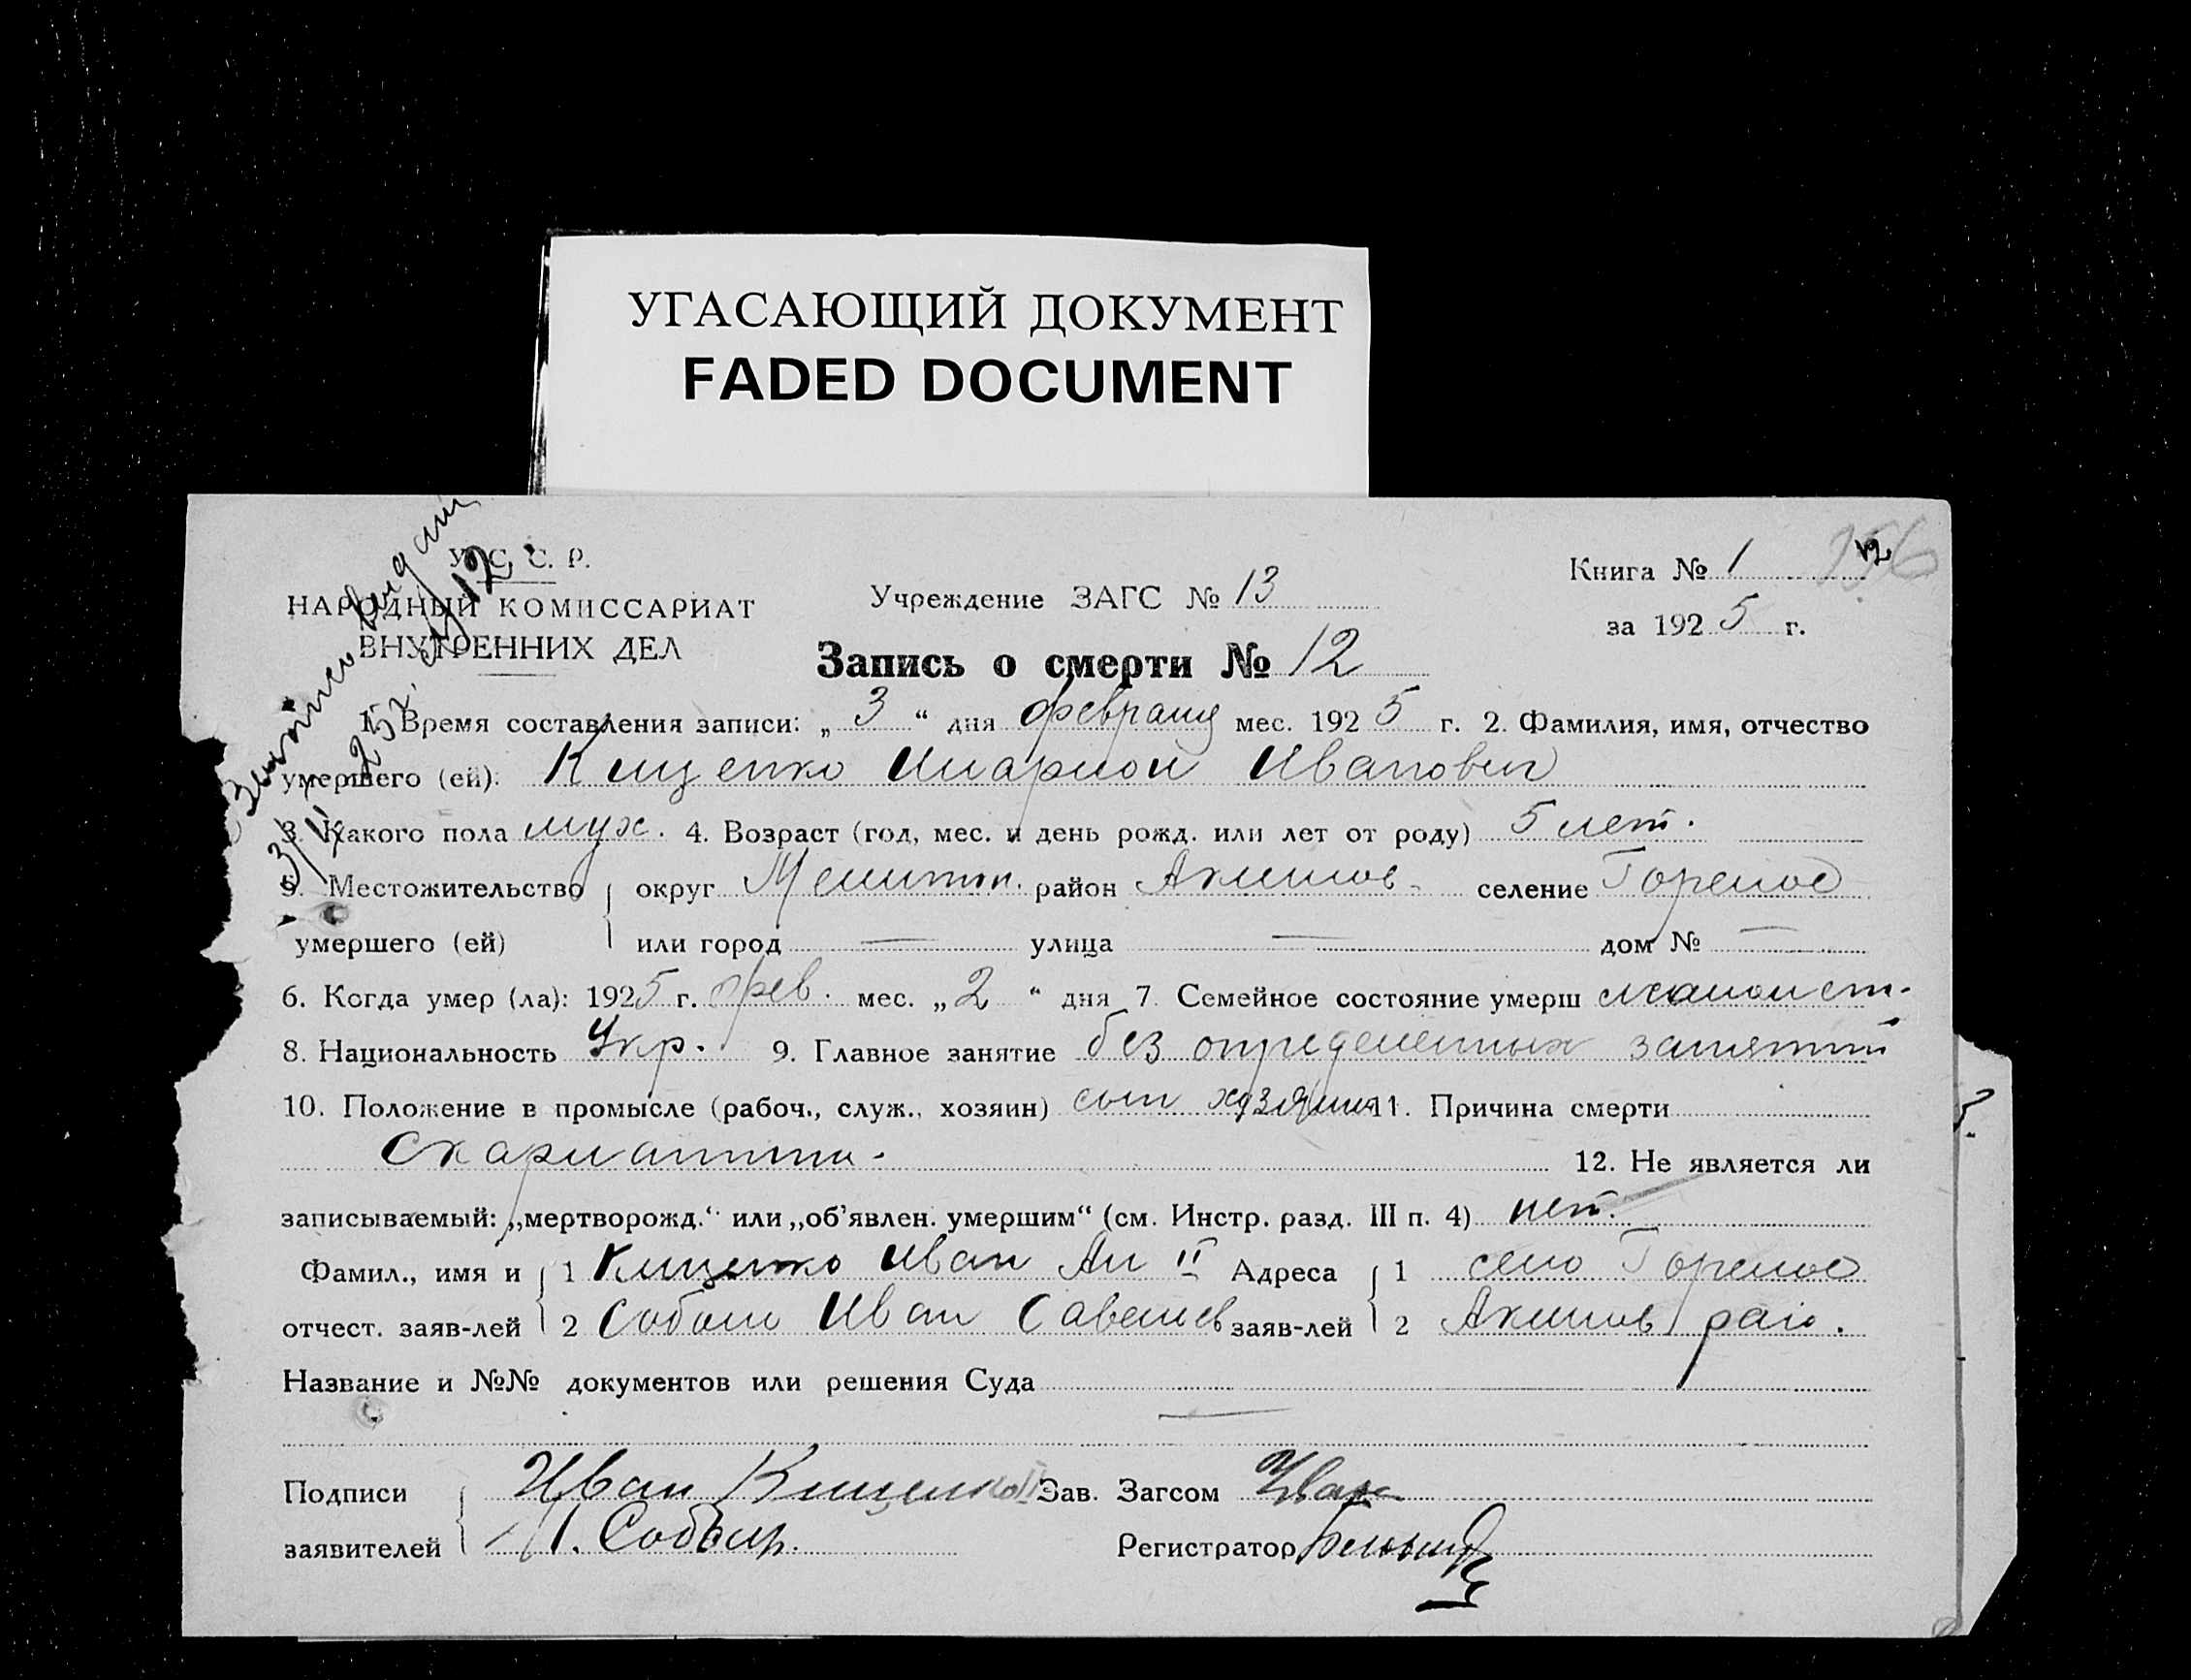 УГАСАЮЩИЙ ДОКУМЕНТ
FADED DOCUMENT
У. С. С. Р.
НАРОДНЫЙ КОМИССАРИАТ
ВНУТРЕННИХ ДЕЛ
Учреждение ЗАГС № 13
Книга № 1
за 1925 г.
Запись о смерти № 12
1. Время составления записи: „3“ дня февраля мес. 1925 г. 2. Фамилия, имя, отчество
умершего (ей): Клиценко Иларион Иванович
3. Какого пола муж. 4. Возраст (год, мес. и день рожд. или лет от роду) 5 лет.
5. Местожительство округ Мелитоп. район Акимов. селение Горелое
умершего (ей) или город — улица — дом № —
6. Когда умер (ла): 1925 г. фев. мес. „2“ дня 7. Семейное состояние умерш холост.
8. Национальность Укр. 9. Главное занятие без определенных занятий
10. Положение в промысле (рабоч., служ., хозяин) сын хозяина 11. Причина смерти
Скарлатина. 12. Не является ли
записываемый: „мертворожд.“ или „об'явлен. умершим“ (см. Инстр. разд. III п. 4) нет.
Фамил., имя и 1 Клиценко Иван Ан II Адреса 1 село Горелое
отчест. заяв-лей 2 Иван Савельев заяв-лей 2 Акимов райо.
Название и №№ документов или решения Суда
—
Подписи Иван Клиценко II Зав. Загсом
заявителей Регистратор